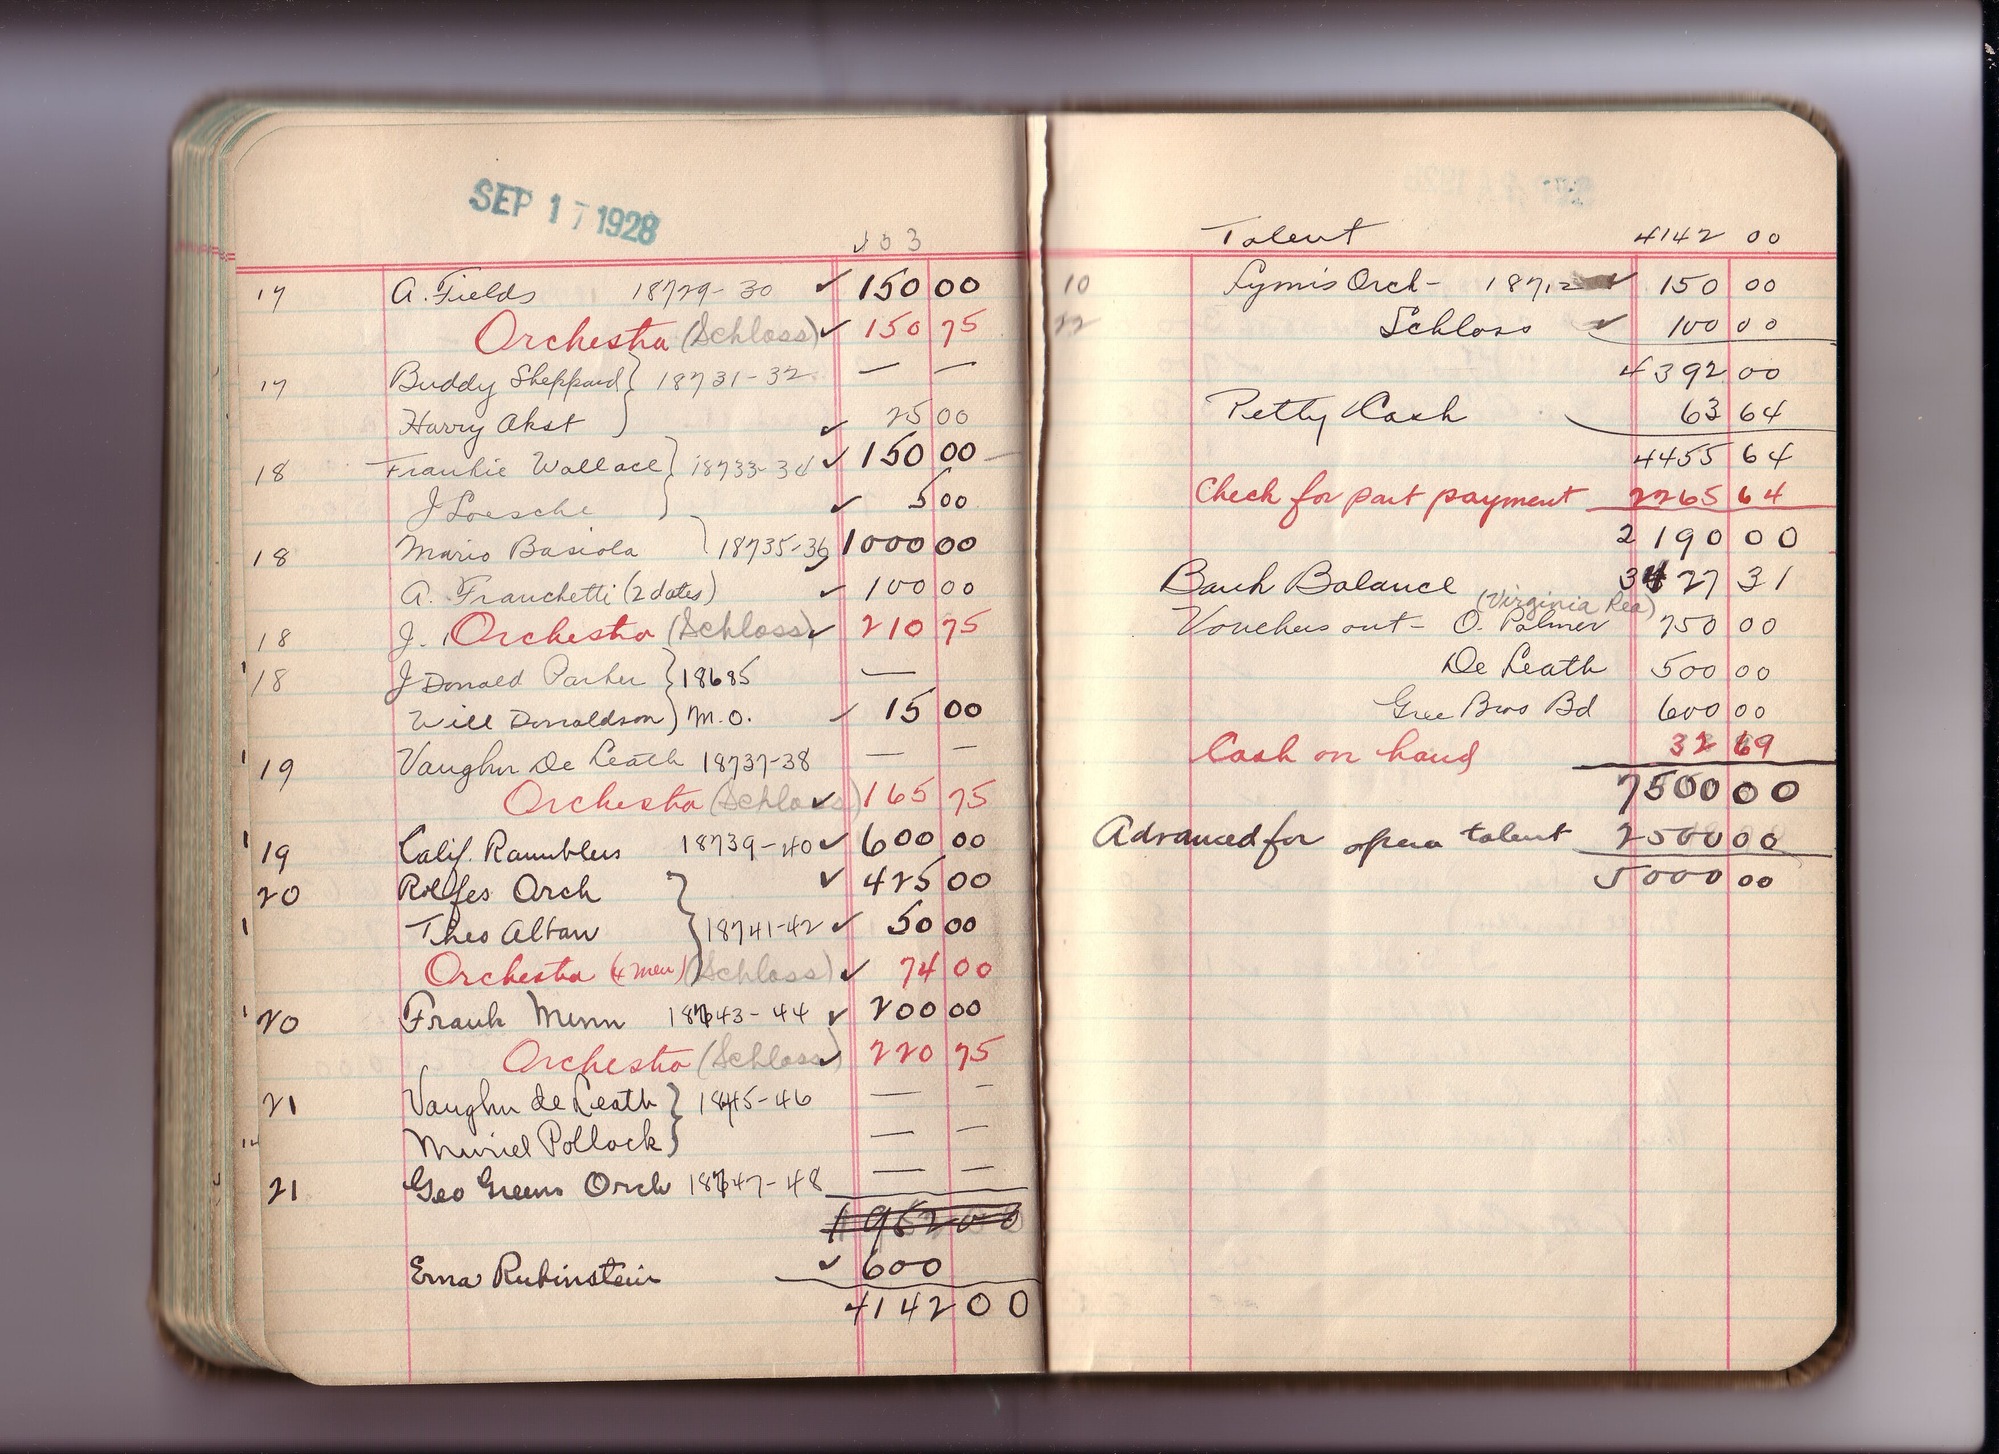 SEP 17 1928
103
17 A. Fields 18729-30 ✓ 150 00
Orchestra (Schloss) ✓ 150 75
17 Buddy Sheppard } 18731-32 — —
Harry Akst } ✓ 25 00
18 Frankie Wallace } 18733-34 ✓ 150 00
J Loesche } ✓ 5 00
18 Mario Basiola } 18735-36 1000 00
A. Franchetti (2 dates) ✓ 100 00
18 J. Orchestra (Schloss) ✓ 210 75
18 J Donald Parker } 18685 —
Will Donaldson } M.O. ✓ 15 00
19 Vaughn De Leath 18737-38 — —
Orchestra (Schloss) ✓ 165 75
19 Calif. Ramblers 18739-40 ✓ 600 00
20 Rolfes Orch } ✓ 425 00
Theo Alban } 18741-42 ✓ 50 00
Orchestra (4 men) (Schloss) ✓ 74 00
20 Frank Munn 18743-44 ✓ 200 00
Orchestra (Schloss) ✓ 220 75
21 Vaughn de Leath } 18745-46 — —
Muriel Pollock } — —
21 Geo Greens Orch 18747-48 — —
Erna Rubinstein ✓ 600
4142 00
Talent 4142 00
10 Lyms Orch- 18712 ✓ 150 00
22 Schloss ✓ 100 00
4392 00
Petty Cash 63 64
4455 64
Check for part payment 2265 64
2190 00
Bank Balance 3427 31
(Virginia Rea)
Vouchers out- O. Palmer 750 00
De Leath 500 00
Gree Bros Bd 600 00
Cash on hand 32 69
7500 00
Advanced for opera talent 2500 00
5000 00